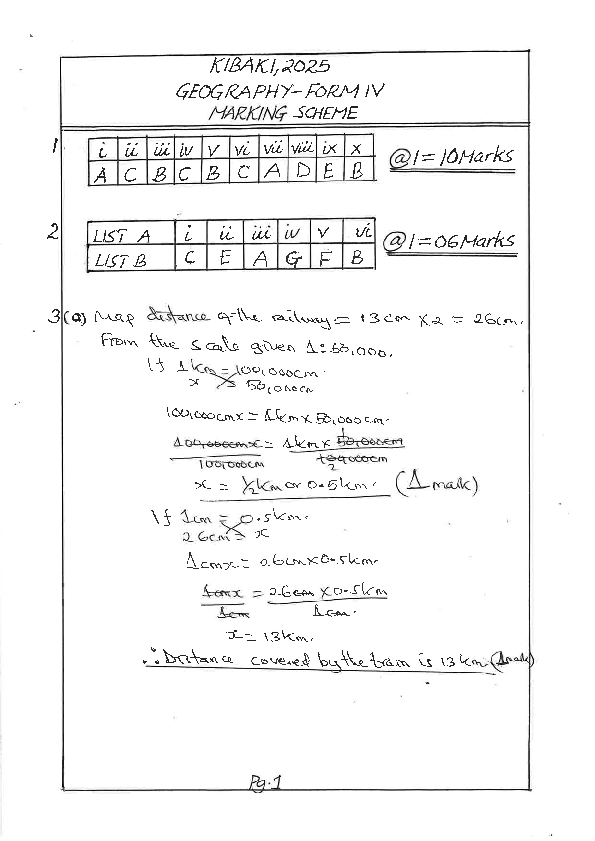 KIBAKI, 2025
GEOGRAPHY-FORM IV
MARKING SCHEME
1
i ii iii iv v vi vii viii ix x
A C B C B C A D E B
@1=10Marks
2
LIST A i ii iii iv v vi
LIST B C E A G F B
@1=06Marks
3(a) Map distance of the railway = 13cm x2 = 26cm.
From the scale given 1:50,000.
If 1km = 100,000cm.
x = 50,000cm
100,000cmx = 1km x 50,000cm.
100,000cmx = 1km x 50,000cm
100,000cm 100,000cm
x = 1/2km or 0.5km. (1mark)
If 1cm = 0.5km.
26cm = x
1cmx = 26cm x 0.5km.
1cmx = 26cm x 0.5km
1cm 1cm.
x = 13km.
∴ Distance covered by the train is 13km. (1mark)
Pg.1